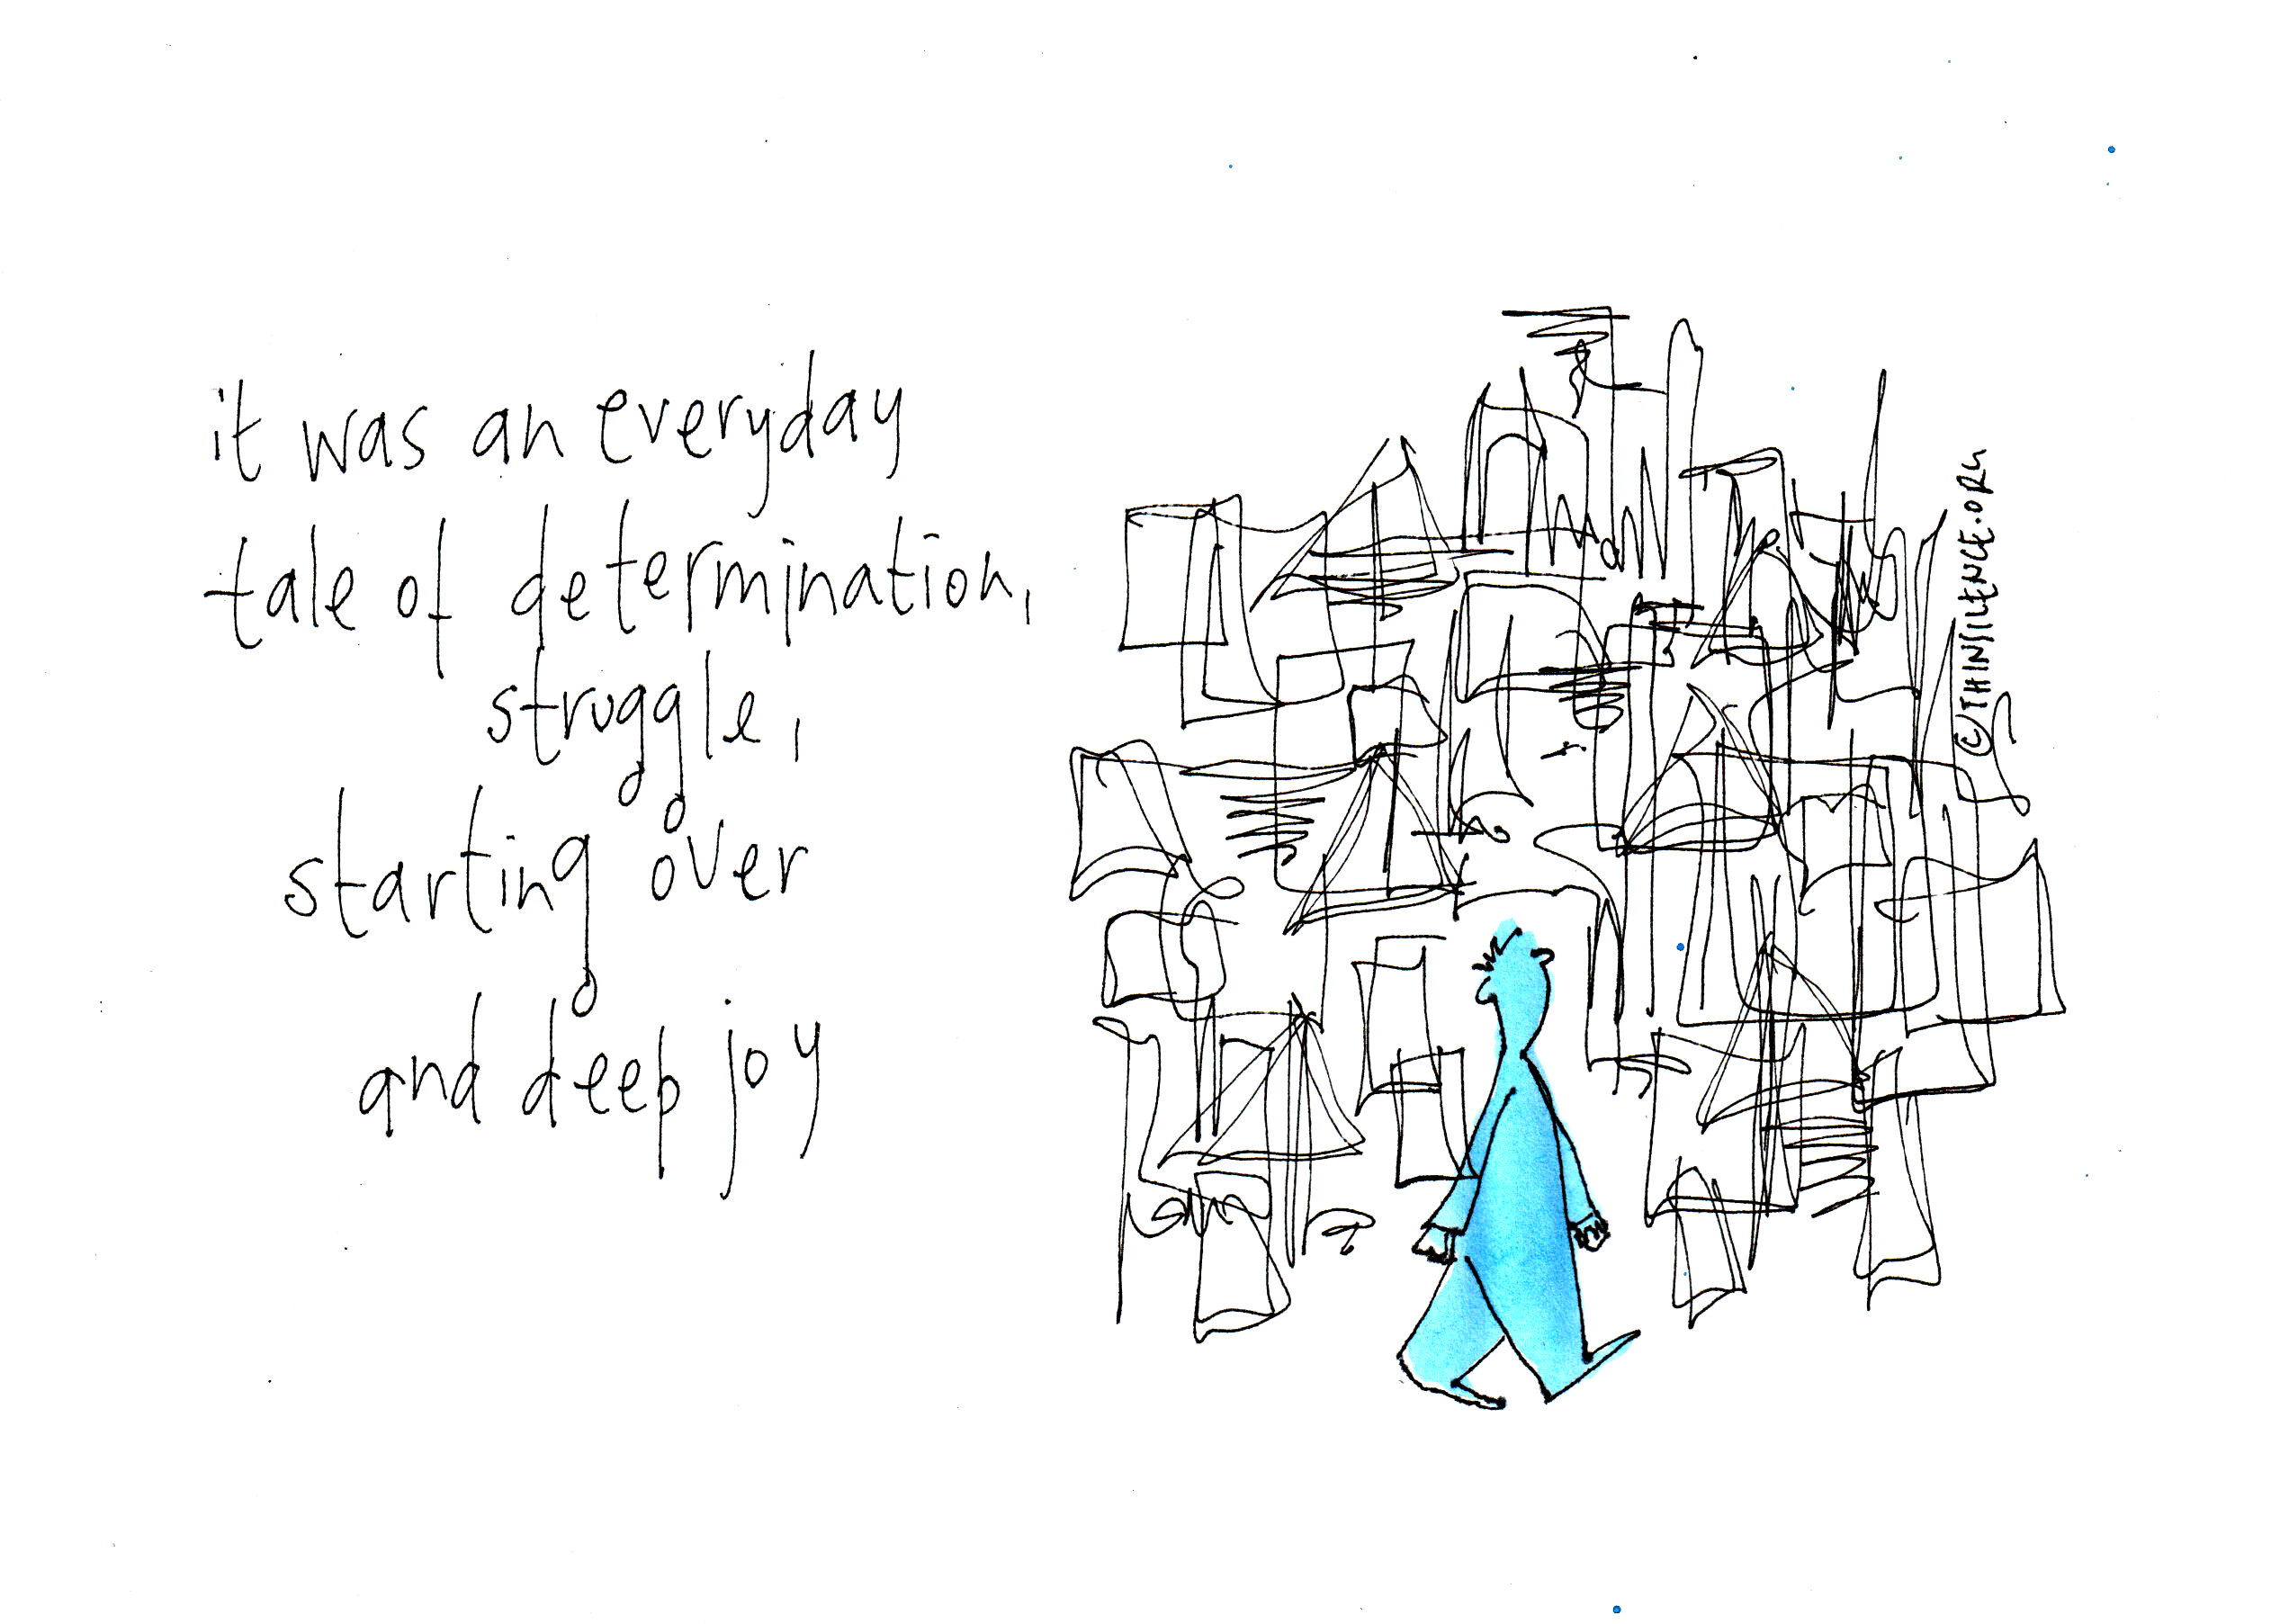 it was an everyday
tale of determination,
struggle,
starting over
and deep joy
©THINSILENCE.ORG